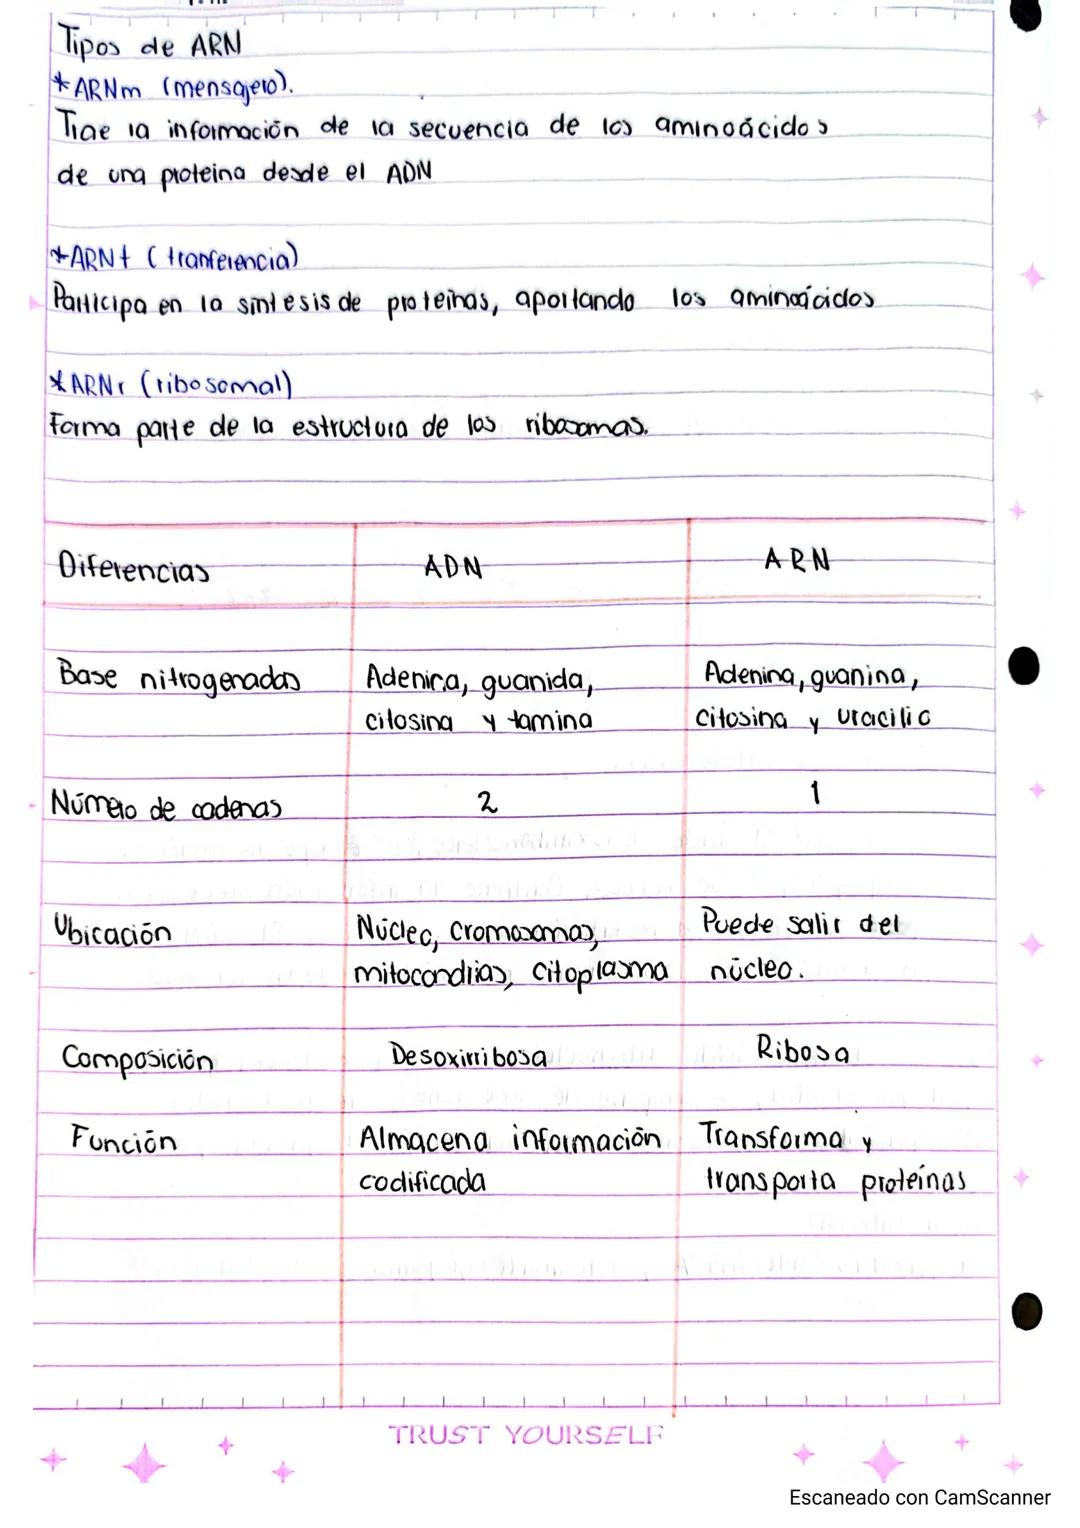 Tipos de ARN
*ARNm (mensajero).
Trae la información de la secuencia de los aminoácidos
de una proteina desde el ADN
*ARNt (tranferencia)
Participa en la sintesis de proteinas, aportando los aminoácidos
*ARNr (ribosomal)
Forma parte de la estructura de los ribosomas.
Diferencias ADN ARN
Base nitrogenadas Adenina, guanida, Adenina, guanina,
citosina y tamina citosina y uracilio
Número de cadenas 2 1
Ubicación Núcleo, cromosomas, Puede salir del
mitocondrias, citoplasma núcleo.
Composición Desoxirribosa Ribosa
Función Almacena información Transforma y
codificada transporta proteínas
TRUST YOURSELF
Escaneado con CamScanner